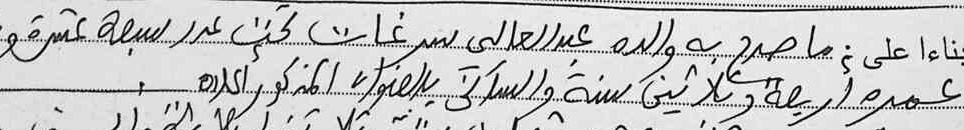 بناءا على : ما صرح به والده عبد العالي سرغات تحت عدد سبعة عشرة و
عمره أربعة وثلاثين سنة والساكن بالعنوان المذكور أعلاه .